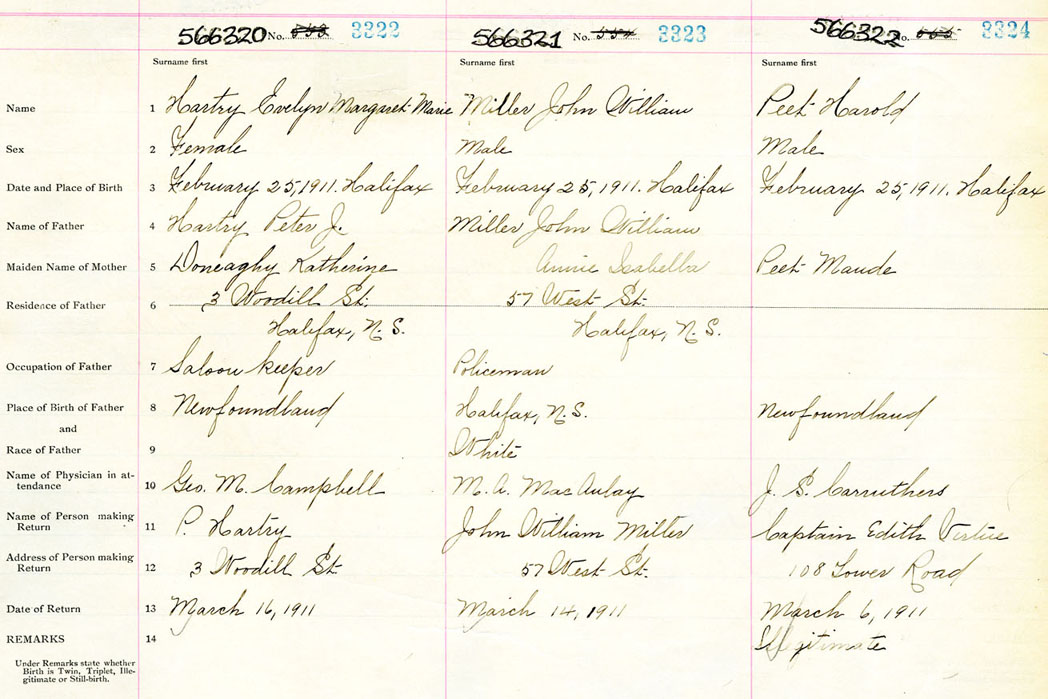 566320 No. 3322
566321 No. 3323
566322 No. 3324
Surname first Surname first Surname first
Name 1 Hartry Evelyn Margaret Marie Miller John William Peet Harold
Sex 2 Female Male Male
Date and Place of Birth 3 February 25, 1911. Halifax February 25, 1911. Halifax February 25, 1911. Halifax
Name of Father 4 Hartry Peter J. Miller John William
Maiden Name of Mother 5 Doneaghy Katherine Annie Isabella Peet Maude
Residence of Father 6 3 Woodill St. 57 West St.
Halifax, N.S. Halifax, N.S.
Occupation of Father 7 Saloon keeper Policeman
Place of Birth of Father 8 Newfoundland Halifax, N.S. Newfoundland
and
Race of Father 9 White
Name of Physician in at-
tendance 10 Geo. M. Campbell M. A. MacAulay J. S. Carruthers
Name of Person making
Return 11 P. Hartry John William Miller Captain Edith Virtue
Address of Person making
Return 12 3 Woodill St. 57 West St. 108 Lower Road
Date of Return 13 March 16, 1911 March 14, 1911 March 6, 1911
REMARKS 14 Illegitimate
Under Remarks state whether
Birth is Twin, Triplet, Ille-
gitimate or Still-birth.